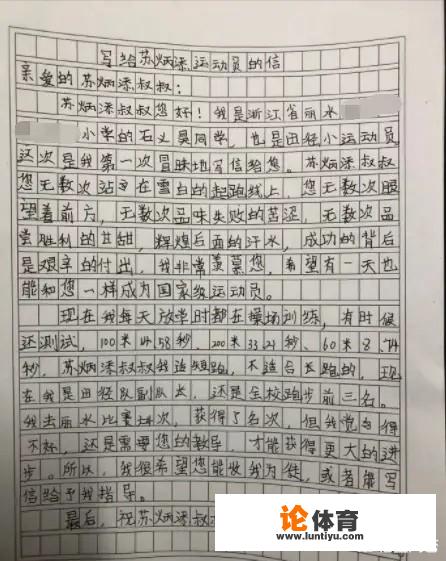 写给苏炳添运动员的信
亲爱的苏炳添叔叔：
苏炳添叔叔您好！我是浙江省丽水
小学的石义昊同学，也是田径小运动员。
这次是我第一次冒昧地写信给您。苏炳添叔叔
您无数次站在雪白的起跑线上，您无数次眼
望着前方，无数次品味失败的苦涩，无数次品
尝胜利的甘甜，辉煌后面的汗水，成功的背后
是艰辛的付出，我非常羡慕您，希望有一天也
能和您一样成为国家级运动员。
现在我每天放学时都在操场训练，有时候
还测试，100米14.58秒、200米33.21秒、60米8.74
秒，苏炳添叔叔我适短跑，不适合长跑的，现
在我是田径队副队长，还是全校跑步前三名。
我去丽水比赛 次，获得了名次，但我觉得
不够，还是需要您的教导，才能获得更大的进
步。所以，我很希望您能收我为徒，或者能写
信给予我指导。
最后，祝苏炳添叔
论体育
www.luntiyu.com